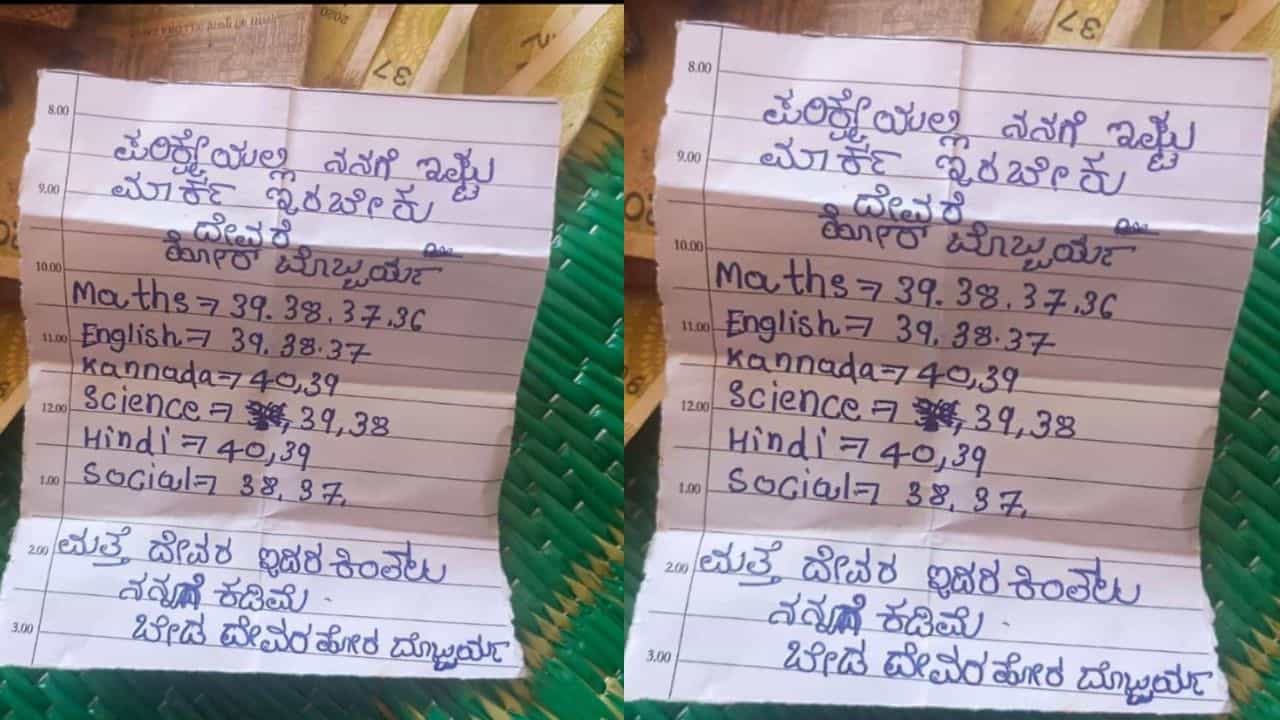 8.00
ಪರಿಕ್ಷೇಯಲ್ಲಿ ನನಗೆ ಇಷ್ಟು
9.00
ಮಾರ್ಕ್ ಇರಬೇಕು
ದೇವರೆ
10.00
ಹೋರ್
Maths ⇒ 39. 38. 37. 36
11.00
English ⇒ 39. 38. 37
Kannada ⇒ 40, 39
12.00
Science ⇒ , 39, 38
Hindi ⇒ 40, 39
1.00
Social ⇒ 38. 37.
2.00
ಮತ್ತೆ ದೇವರ ಇದರಕಿಂತಲು
ನನ್ನಗೆ ಕಡಿಮೆ
3.00
ಬೇಡ ದೇವರ ಹೋರ ದೊಜ್ಜುರ್ಯ
37
2020
8.00
ಪರಿಕ್ಷೇಯಲ್ಲಿ ನನಗೆ ಇಷ್ಟು
9.00
ಮಾರ್ಕ್ ಇರಬೇಕು
ದೇವರೆ
10.00
ಹೋರ್
Maths ⇒ 39. 38. 37. 36
11.00
English ⇒ 39. 38. 37
Kannada ⇒ 40, 39
12.00
Science ⇒ , 39, 38
Hindi ⇒ 40, 39
1.00
Social ⇒ 38. 37.
2.00
ಮತ್ತೆ ದೇವರ ಇದರಕಿಂತಲು
ನನ್ನಗೆ ಕಡಿಮೆ
3.00
ಬೇಡ ದೇವರ ಹೋರ ದೊಜ್ಜುರ್ಯ
37